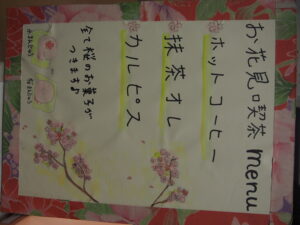 お花見喫茶 menu
ホットコーヒー
抹茶オレ
カルピス
全て桜のお菓子が
つきます♪